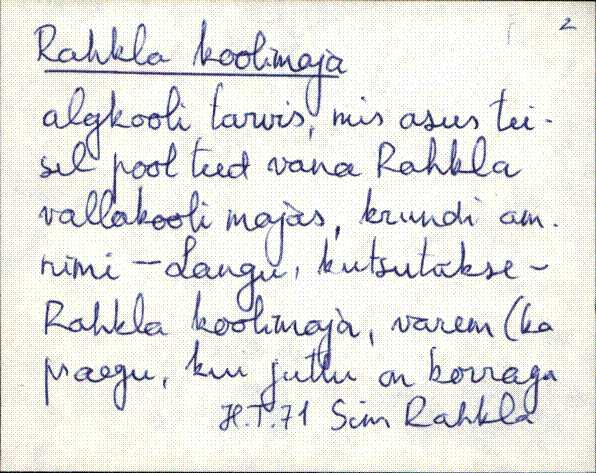 2
Rahkla koolimaja
algkooli tarvis, mis asus tei-
sel pool teed vana Rahkla
vallakooli majas, krundi am.
nimi – Langu, kutsutakse –
Rahkla koolimaja, varem (ka
praegu, kui juttu on korraga
H.T. 71 Sim Rahkla